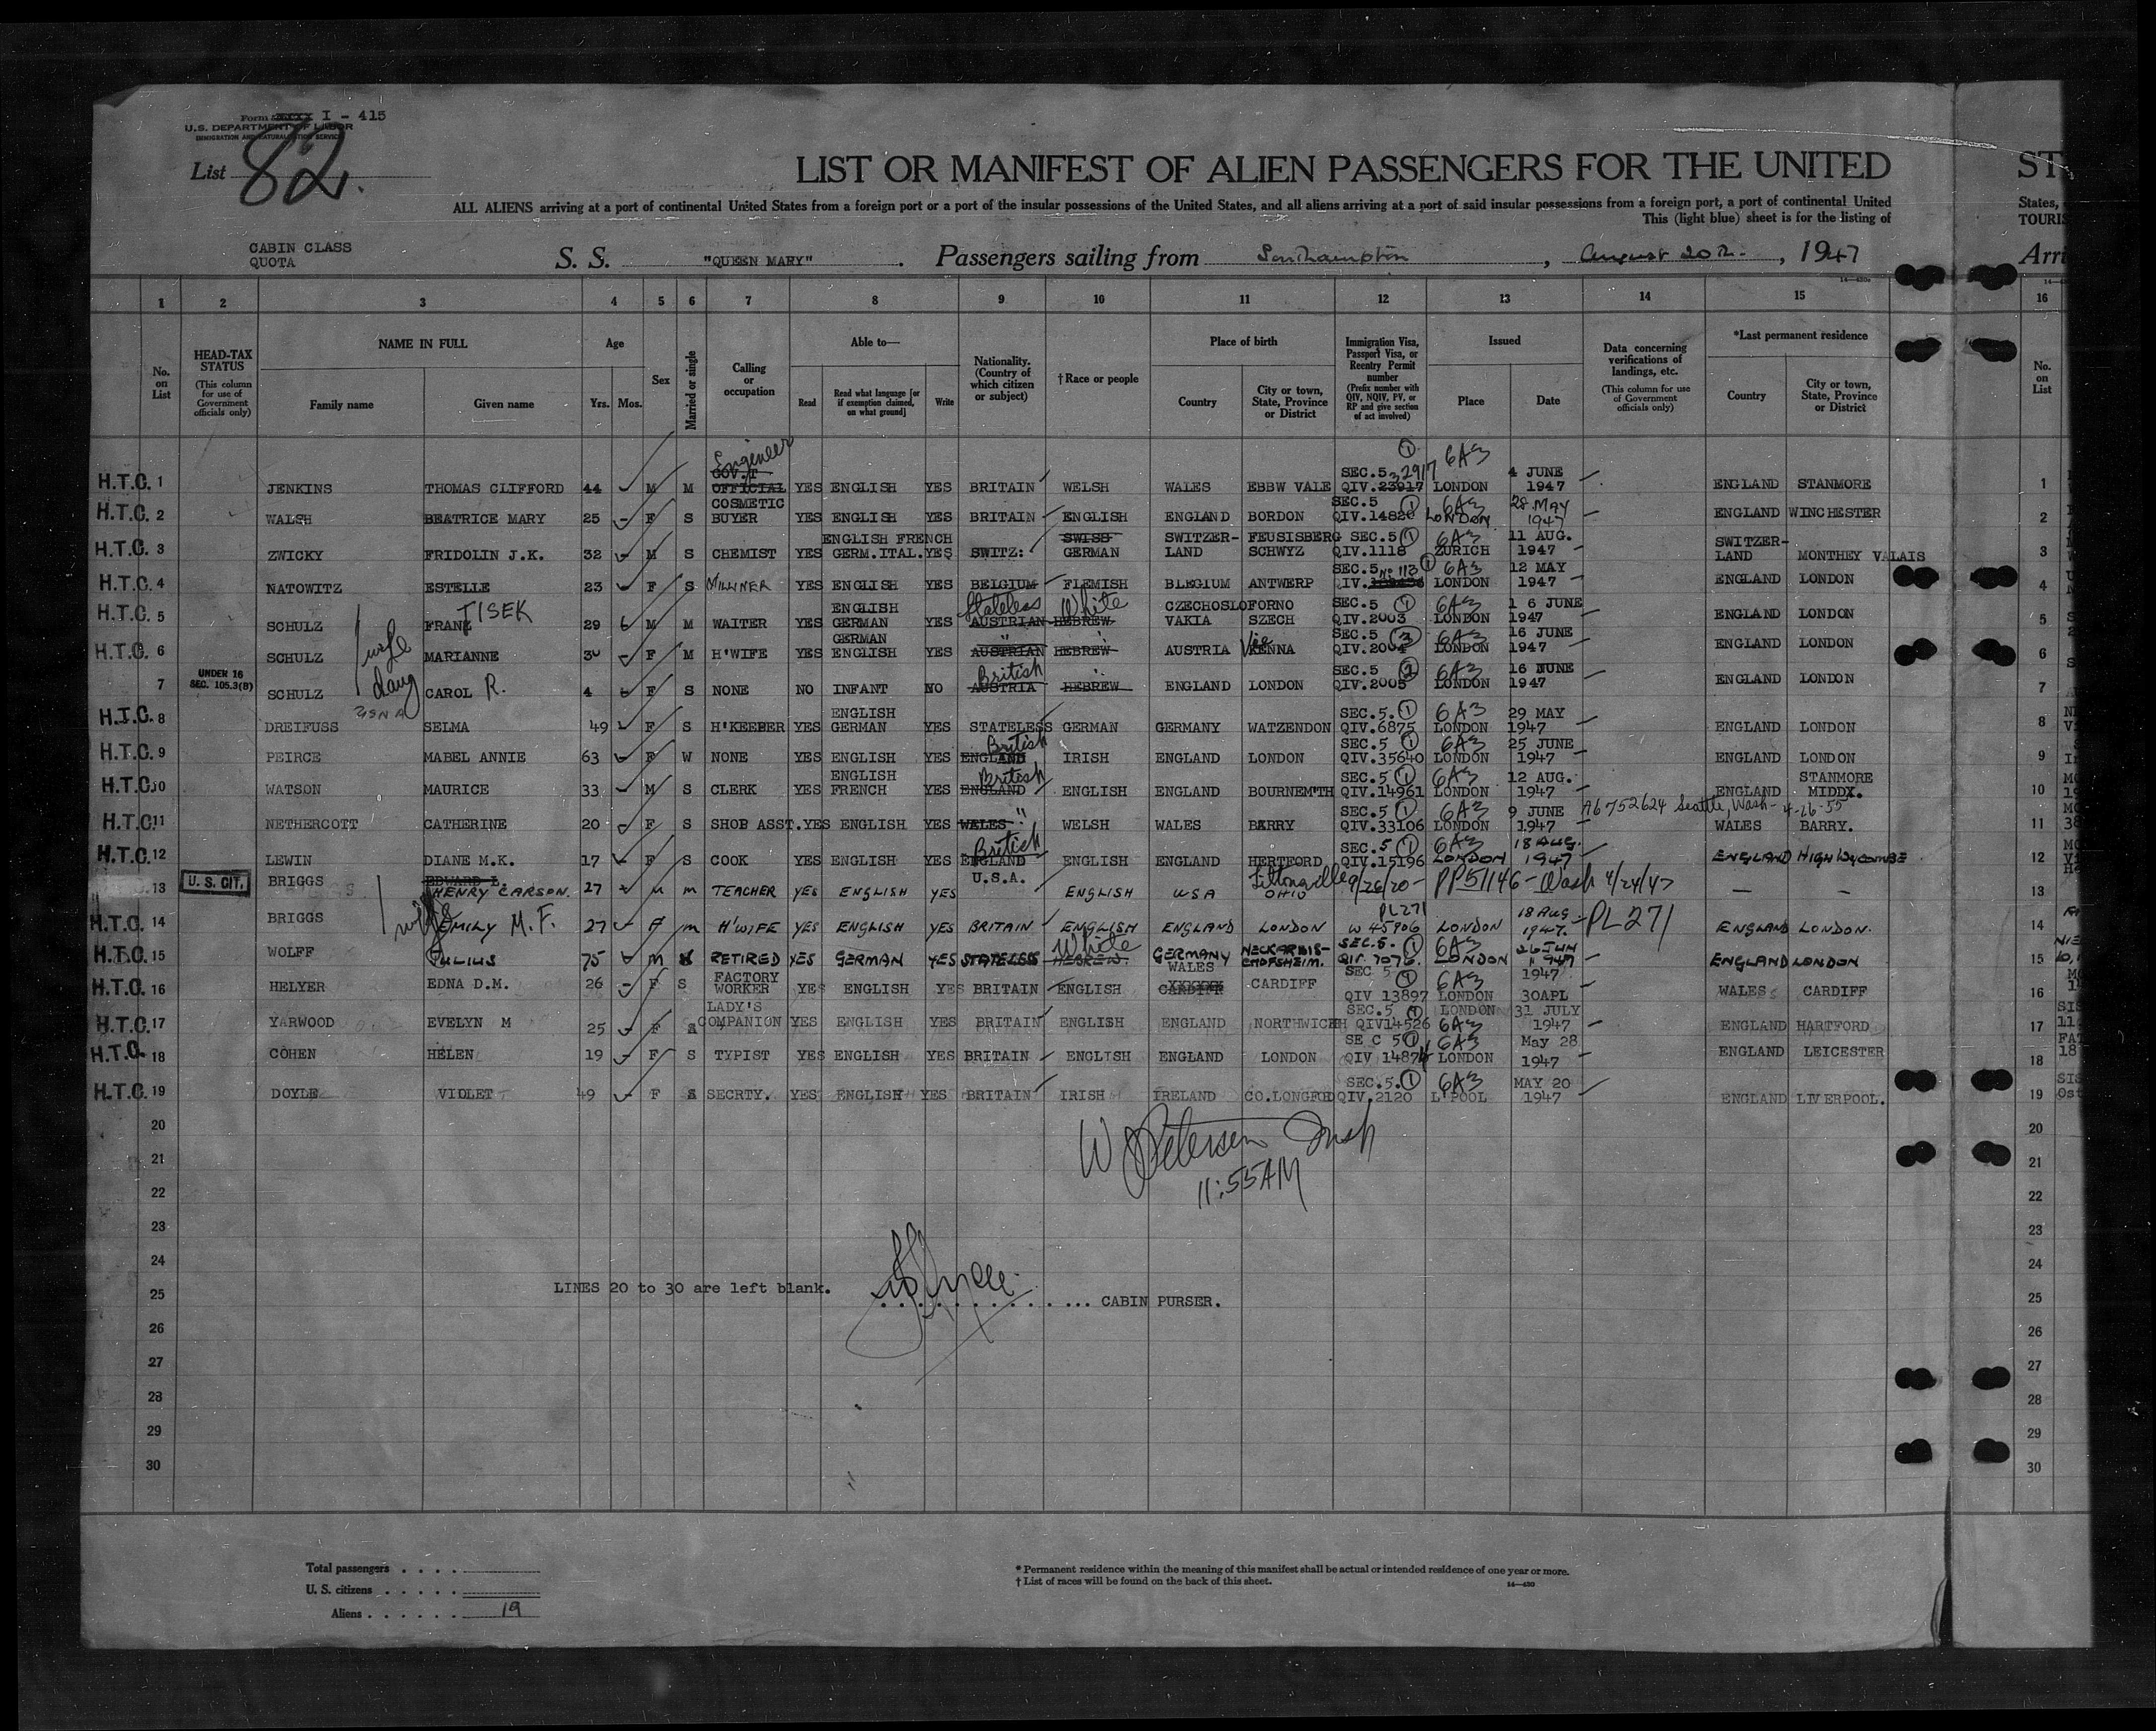 Form I - 415
U.S. DEPARTMENT OF LABOR
IMMIGRATION AND NATURALIZATION SERVICE
List 82.
LIST OR MANIFEST OF ALIEN PASSENGERS FOR THE UNITED ST
ALL ALIENS arriving at a port of continental United States from a foreign port or a port of the insular possessions of the United States, and all aliens arriving at a port of said insular possessions from a foreign port, a port of continental United States,
This (light blue) sheet is for the listing of TOURIS
CABIN CLASS
QUOTA
S. S. "QUEEN MARY". Passengers sailing from Southampton, August 20th., 1947 Arri
1 2 3 4 5 6 7 8 9 10 11 12 13 14 15 16
No. on List
HEAD-TAX STATUS (This column for use of Government officials only)
NAME IN FULL Family name Given name
Age Yrs. Mos.
Sex
Married or single
Calling or occupation
Able to— Read Read what language [or if exemption claimed, on what ground] Write
Nationality. (Country of which citizen or subject)
†Race or people
Place of birth Country City or town, State, Province or District
Immigration Visa, Passport Visa, or Reentry Permit number (Prefix number with QIV, NQIV, PV, or RP and give section of act involved)
Issued Place Date
Data concerning verifications of landings, etc. (This column for use of Government officials only)
*Last permanent residence Country City or town, State, Province or District
No. on List
H.T.C. 1 JENKINS THOMAS CLIFFORD 44 M M GOV.T OFFICIAL Engineer YES ENGLISH YES BRITAIN WELSH WALES EBBW VALE SEC.5 1 QIV.23917 32917 6A3 LONDON 4 JUNE 1947 ENGLAND STANMORE 1
H.T.C. 2 WALSH BEATRICE MARY 25 F S COSMETIC BUYER YES ENGLISH YES BRITAIN ENGLISH ENGLAND BORDON SEC.5 1 QIV.14820 6A3 LONDON 28 MAY 1947 ENGLAND WINCHESTER 2
H.T.C. 3 ZWICKY FRIDOLIN J.K. 32 M S CHEMIST YES ENGLISH FRENCH GERM.ITAL. YES SWITZ: SWISS GERMAN SWITZER-LAND FEUSISBERG SCHWYZ SEC.5 1 QIV.1118 6A3 ZURICH 11 AUG. 1947 SWITZER-LAND MONTHEY VALAIS 3
H.T.C. 4 NATOWITZ ESTELLE 23 F S MILLINER YES ENGLISH YES BELGIUM FLEMISH BLEGIUM ANTWERP SEC.5 No 113 1 QIV. 6A3 LONDON 12 MAY 1947 ENGLAND LONDON 4
H.T.C. 5 SCHULZ FRANZ TISEK 29 6 M M WAITER YES ENGLISH GERMAN YES Stateless AUSTRIAN White HEBREW CZECHOSLO VAKIA FORNO SZECH SEC.5 1 QIV.2003 6A3 LONDON 1 6 JUNE 1947 ENGLAND LONDON 5
H.T.C. 6 SCHULZ wife MARIANNE 30 F M H'WIFE YES GERMAN ENGLISH YES " AUSTRIAN HEBREW AUSTRIA Vie KENNA SEC.5 3 QIV.2004 6A3 LONDON 16 JUNE 1947 ENGLAND LONDON 6
7 UNDER 16 SEC. 105.3(B) SCHULZ daug CAROL R. 4 F S NONE NO INFANT NO British AUSTRIA HEBREW ENGLAND LONDON SEC.5 2 QIV.2005 6A3 LONDON 16 NUNE 1947 ENGLAND LONDON 7
H.T.C. 8 DREIFUSS SELMA 49 F S H'KEEPER YES ENGLISH GERMAN YES STATELESS GERMAN GERMANY WATZENDON SEC.5. 1 QIV.6875 6A3 LONDON 29 MAY 1947 ENGLAND LONDON 8
H.T.C. 9 PEIRCE MABEL ANNIE 63 F W NONE YES ENGLISH YES British ENGLAND IRISH ENGLAND LONDON SEC.5 1 QIV.35640 6A3 LONDON 25 JUNE 1947 ENGLAND LONDON 9
H.T.C. 10 WATSON MAURICE 33 M S CLERK YES ENGLISH FRENCH YES British ENGLAND ENGLISH ENGLAND BOURNEM'TH SEC.5 1 QIV.14961 6A3 LONDON 12 AUG. 1947 ENGLAND STANMORE MIDDX. 10
H.T.C. 11 NETHERCOTT CATHERINE 20 F S SHOP ASST. YES ENGLISH YES WALES " WELSH WALES BARRY SEC.5 1 QIV.33106 6A3 LONDON 9 JUNE 1947 A6752624 Seattle, Wash- 4-26-55 WALES BARRY. 11
H.T.C. 12 LEWIN DIANE M.K. 17 F S COOK YES ENGLISH YES British ENGLAND ENGLISH ENGLAND HERTFORD SEC.5 1 QIV.15196 6A3 LONDON 18 AUG. 1947 ENGLAND HIGH WYCOMBE 12
13 U. S. CIT. BRIGGS EDWARD L. HENRY CARSON. 27 M M TEACHER YES ENGLISH YES U.S.A. ENGLISH USA OHIO 9/26/20 - PP51146 - Wash 4/24/47 — — 13
H.T.C. 14 BRIGGS wife EMILY M.F. 27 F M H'WIFE YES ENGLISH YES BRITAIN ENGLISH ENGLAND LONDON PL271 W 45906 LONDON 18 AUG. 1947. PL271 ENGLAND LONDON. 14
H.T.C. 15 WOLFF JULIUS 75 M RETIRED YES GERMAN YES STATELESS White HEBREW. GERMANY NECKARBIS-CHOFSHEIM. SEC.5. 1 QIV. 7076. 6A3 LONDON 26 JUN 1947 ENGLAND LONDON 15
H.T.C. 16 HELYER EDNA D.M. 26 F S FACTORY WORKER YES ENGLISH YES BRITAIN ENGLISH WALES CARDIFF SEC 5 1 QIV 13897 6A3 LONDON 1947 30APL WALES CARDIFF 16
H.T.C. 17 YARWOOD EVELYN M 25 F S LADY'S COMPANION YES ENGLISH YES BRITAIN ENGLISH ENGLAND NORTHWICH SEC.5 1 QIV14526 6A3 LONDON 31 JULY 1947 ENGLAND HARTFORD 17
H.T.C. 18 COHEN HELEN 19 F S TYPIST YES ENGLISH YES BRITAIN ENGLISH ENGLAND LONDON SE C 5 1 QIV 14874 6A3 LONDON May 28 1947 ENGLAND LEICESTER 18
H.T.C. 19 DOYLE VIOLET 49 F S SECRTY. YES ENGLISH YES BRITAIN IRISH IRELAND CO.LONGFOD SEC.5. 1 QIV.2120 6A3 L'POOL MAY 20 1947 ENGLAND LIVERPOOL. 19
20 20
W Petersen Insp
21 11:55AM 21
22 22
23 23
24 24
LINES 20 to 30 are left blank.
25 CABIN PURSER. 25
26 26
27 27
28 28
29 29
30 30
Total passengers
U. S. citizens
Aliens 19
* Permanent residence within the meaning of this manifest shall be actual or intended residence of one year or more.
† List of races will be found on the back of this sheet.
14—430